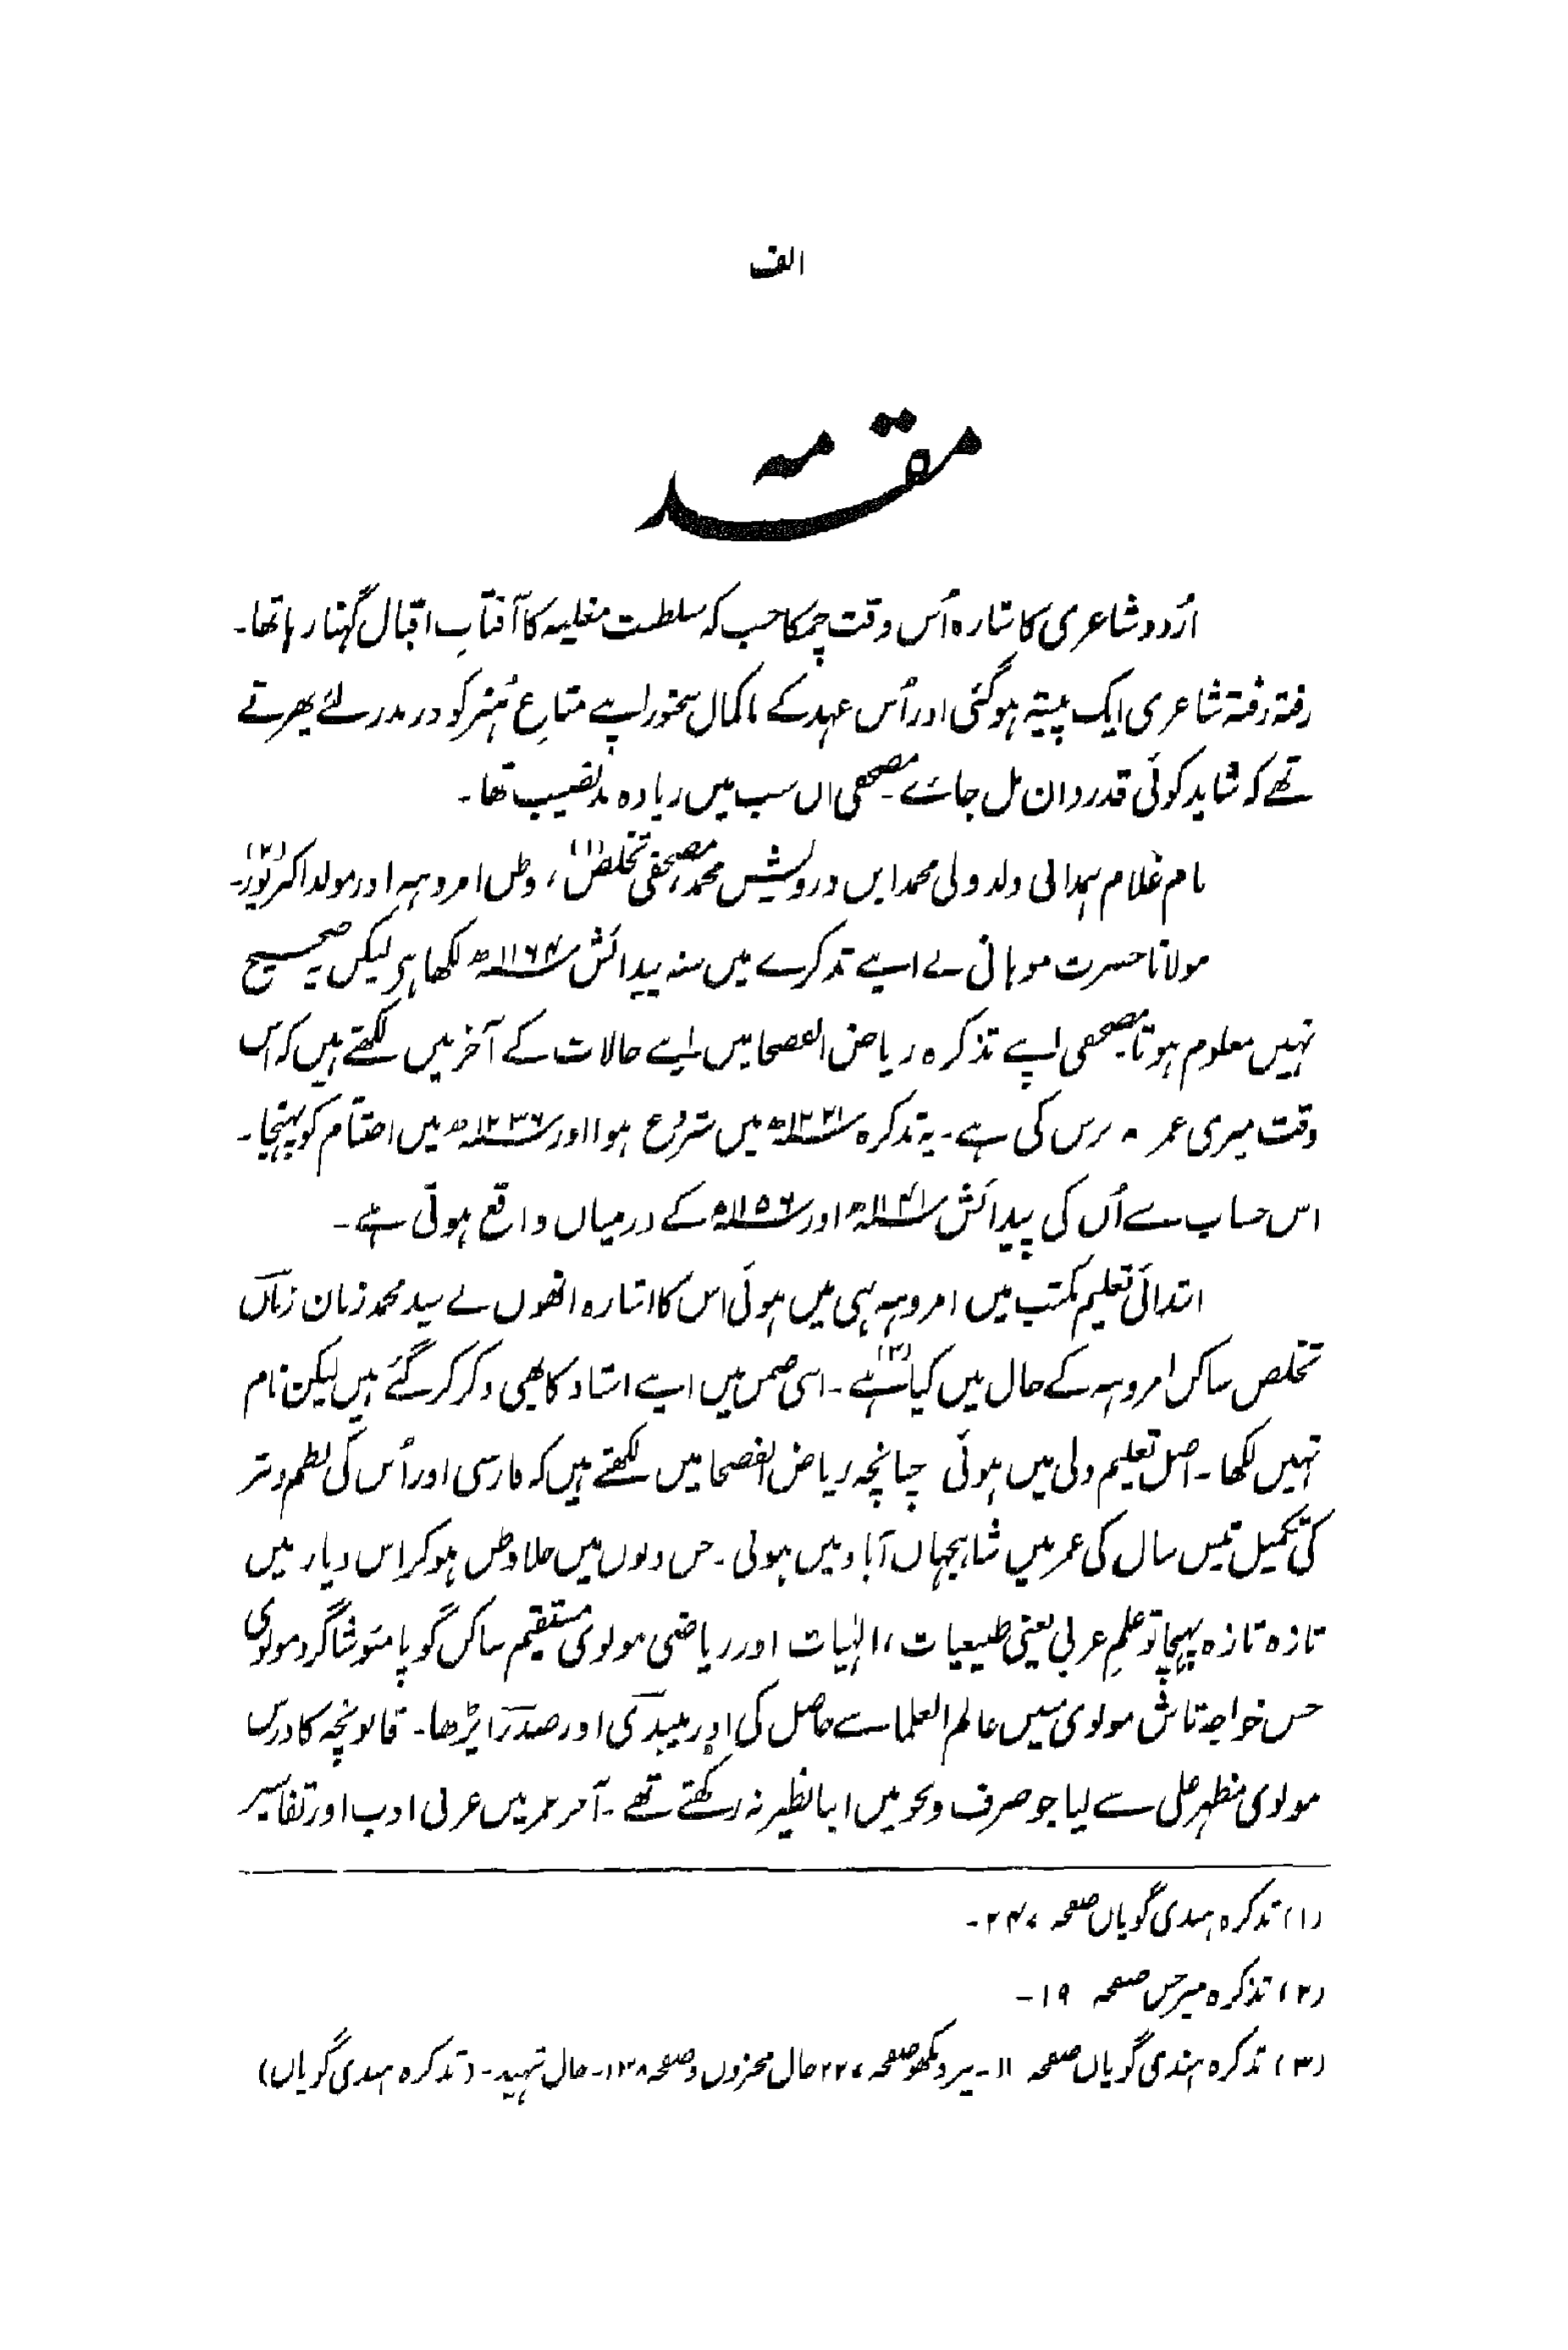 الف
مقدمہ
اُردو شاعری کا ستارہ اُس وقت چمکا جب کہ سلطنت مغلیہ کا آفتابِ اقبال گہنا رہا تھا۔
رفتہ رفتہ شاعری ایک پیشہ ہو گئی اور اُس عہد کے باکمال سخنور اپنے متاعِ ہُنر کو در بدر لئے پھرتے
تھے کہ شاید کوئی قدردان مل جائے۔ مصحفی ان سب میں زیادہ بدنصیب تھا۔
نام غلام ہمدانی ولد ولی محمد ابن درویش محمد، مصحفی تخلص(۱)، وطن امروہہ اور مولد اکبر پور(۲)۔
مولانا حسرت موہانی نے اپنے تذکرے میں سنہ پیدائش ۱۱۶۴ھ لکھا ہی لیکن یہ صحیح
نہیں معلوم ہوتا مصحفی اپنے تذکرہ ریاض الفصحا میں اپنے حالات کے آخر میں لکھتے ہیں کہ اس
وقت میری عمر ۰ برس کی ہے۔ یہ تذکرہ ۱۲۲۱ھ میں شروع ہوا اور ۱۲۳۶ھ میں اختتام کو پہنچا۔
اس حساب سے اُن کی پیدائش ۱۱۴۱ھ اور ۱۱۵۶ھ کے درمیان واقع ہوتی ہے۔
ابتدائی تعلیم مکتب میں امروہہ ہی میں ہوئی اس کا اشارہ انھوں نے سید محمد زمان زمان
تخلص ساکن امروہہ کے حال میں کیا ہے(۳)۔ اسی ضمن میں اپنے استاد کا بھی ذکر کر گئے ہیں لیکن نام
نہیں لکھا۔ اصل تعلیم دلی میں ہوئی چنانچہ ریاض الفصحا میں لکھتے ہیں کہ فارسی اور اُس کی نظم و نثر
کی تکمیل تیس سال کی عمر میں شاہجہاں آباد میں ہوئی۔ جن دنوں میں جلاوطن ہو کر اس دیار میں
تازہ تازہ پہنچا تو علمِ عربی یعنی طبیعیات، الٰہیات اور ریاضی مولوی مستقیم ساکن گوپامئو شاگرد مولوی
حسن خواجہ تاش مولوی مبین عالم العلما سے حاصل کی اور میبذی اور صدرا پڑھا۔ قانونچہ کا درس
مولوی مظہر علی سے لیا جو صرف و نحو میں اپنا نظیر نہ رکھتے تھے۔ آخر عمر میں عربی ادب اور تفاسیر
(۱) تذکرہ ہندی گویاں صفحہ ۲۴۷۔
(۲) تذکرہ میر حسن صفحہ ۱۹۔
(۳) تذکرہ ہندی گویاں صفحہ ۱۱۔ نیز دیکھو صفحہ ۲۲۷ حال محزوں و صفحہ ۱۳۸۔ حال شہید۔ (تذکرہ ہندی گویاں)